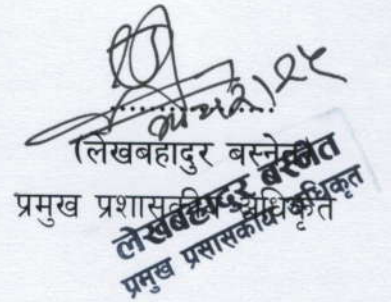 लेखबहादुर बस्नेत
प्रमुख प्रशासकीय अधिकृत
लेखबहादुर बस्नेत
प्रमुख प्रसासकीय अधिकृत